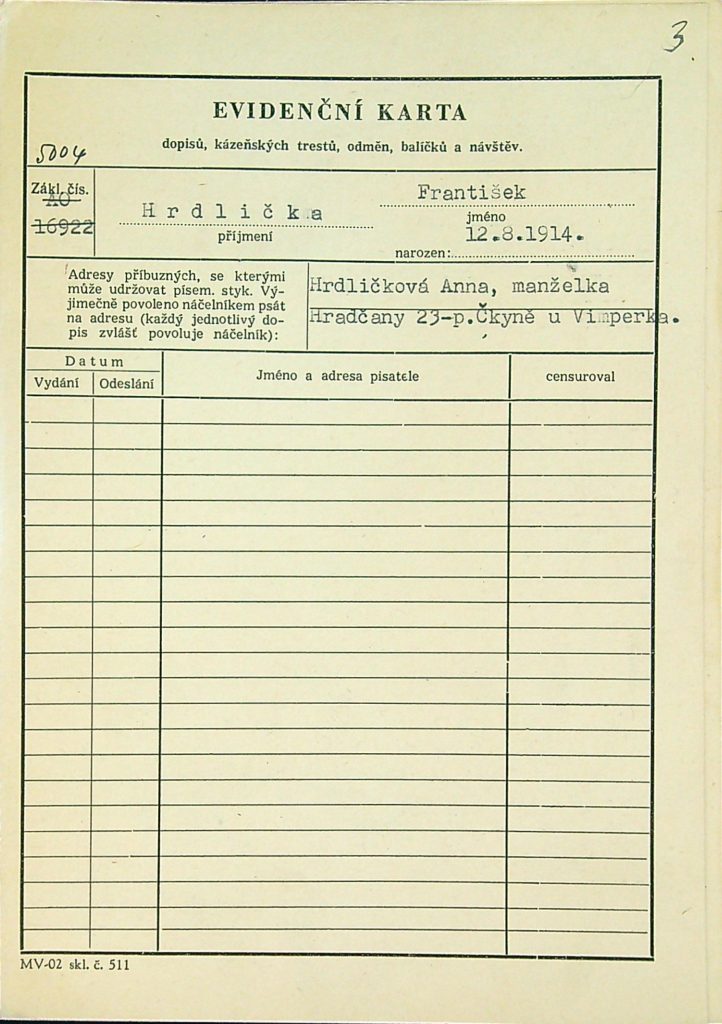 3
EVIDENČNÍ KARTA
dopisů, kázeňských trestů, odměn, balíčků a návštěv.
5004
Zákl. čís.
AO
16922
Hrdlička
příjmení
František
jméno
12.8.1914.
narozen:
Adresy příbuzných, se kterými
může udržovat písem. styk. Vý-
jimečně povoleno náčelníkem psát
na adresu (každý jednotlivý do-
pis zvlášť povoluje náčelník):
Hrdličková Anna, manželka
Hradčany 23-p.Čkyně u Vimperka.
Datum
Vydání
Odeslání
Jméno a adresa pisatele
censuroval
MV-02 skl. č. 511